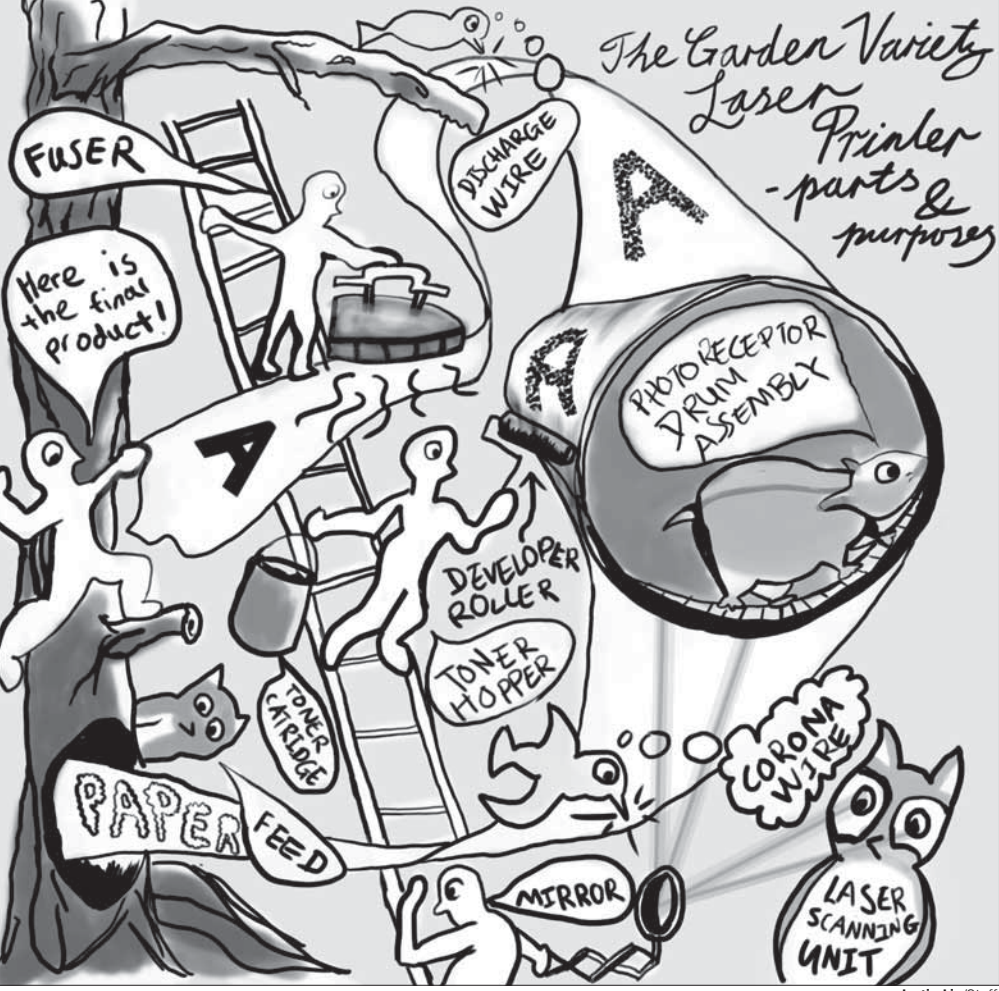 The Garden Variety
Laser
Printer
- parts &
purposes
FUSER
DISCHARGE
WIRE
A
Here is
the final
product!
A
PHOTORECEPTOR
DRUM
ASSEMBLY
A
DEVELOPER
ROLLER
TONER
HOPPER
TONER
CATRIDGE
CORONA
WIRE
PAPER
FEED
MIRROR
LASER
SCANNING
UNIT